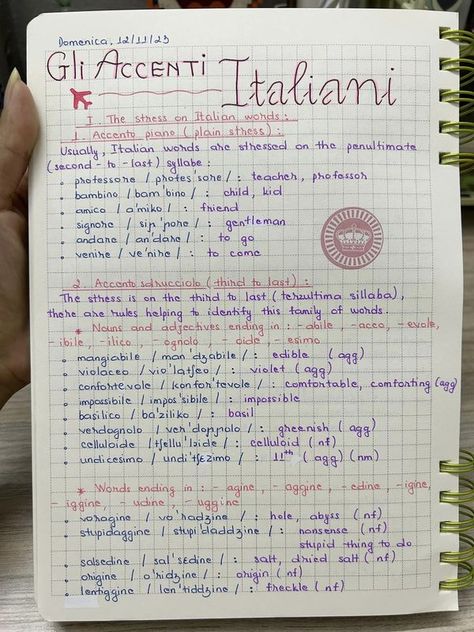 Domenica, 12/11/23
GLI ACCENTI Italiani
I. The stress on Italian words:
1. Accento piano (plain stress):
Usually, Italian words are stressed on the penultimate
(second - to - last) syllabe:
professore /profes'sore/: teacher, professor
bambino /bam'bino/: child, kid
amico /a'miko/: friend
signore /siɲ'ɲore/: gentleman
andare /an'dare/: to go
venire /ve'nire/: to come
2. Accento sdrucciolo (third to last):
The stress is on the third to last (terzultima sillaba),
there are rules helping to identify this family of words.
* Nouns and adjectives ending in: -abile, -aceo, -evole,
-ibile, -ilico, -ognolo, -oide, -esimo
mangiabile /man'dʒabile/: edible (agg)
violaceo /vio'latʃeo/: violet (agg)
confortevole /konfor'tevole/: comfortable, comforting (agg)
impossibile /impos'sibile/: impossible
basilico /ba'ziliko/: basil
verdognolo /ver'doɲɲolo/: greenish (agg)
celluloide /tʃellu'loide/: celluloid (nf)
undicesimo /undi'tʃɛzimo/: 11th (agg) (nm)
* Words ending in: -agine, -aggine, -edine, -igine,
-iggine, -udine, -uggine
voragine /vo'radʒine/: hole, abyss (nf)
stupidaggine /stupi'daddʒine/: nonsense (nf)
stupid thing to do
salsedine /sal'sɛdine/: salt, dried salt (nf)
origine /o'ridʒine/: origin (nf)
lentiggine /len'tiddʒine/: freckle (nf)